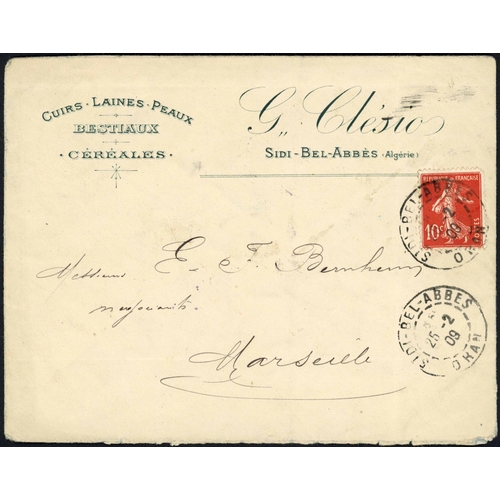 Cuirs · Laines · Peaux
BESTIAUX
· CÉRÉALES ·
G. Clésio
SIDI-BEL-ABBÈS (Algérie)
REPUBLIQUE FRANÇAISE
10c
POSTES
SIDI-BEL-ABBES
09
ORAN
Messieurs E. F. Bernheim
negociants
Marseille
SIDI-BEL-ABBES
25-2
09
ORAN